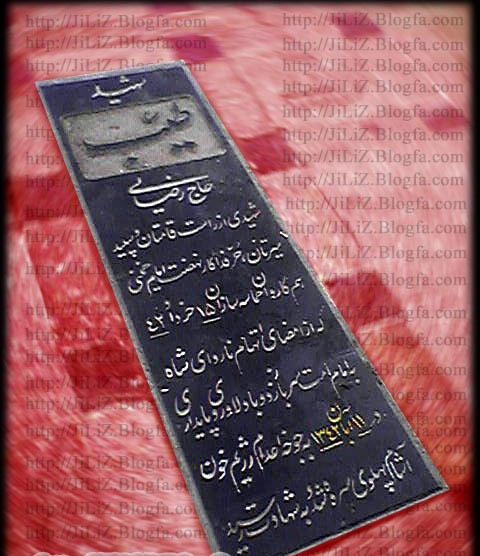 شهید
طیّب
حاج رضایی
شهیدی از راست قامتان و سپید
سیرتان، حرّ فداکار نهضت امام خمینی
هم کاروان حماسه سازان ۱۵ خرداد ۴۲
که از امضای اتهام ناروای شاه
به امام امت سرباز زد و با دلاوری و پایداری
در ۱۱ آبان ۱۳۴۲ به جوخه اعدام رژیم خون
آشام پهلوی سپرده شد و به شهادت رسید
http://JiLiZ.Blogfa.com